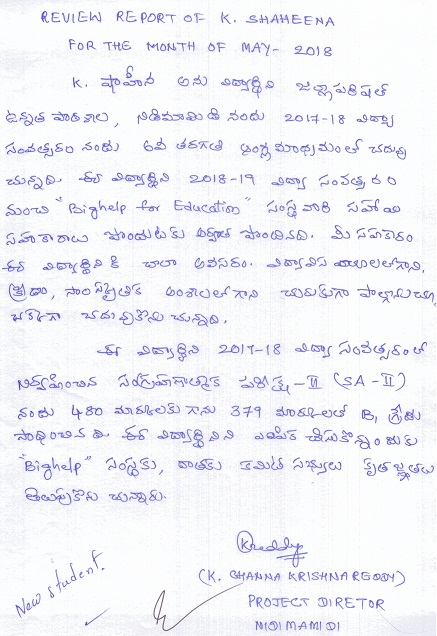 REVIEW REPORT OF K. SHAHEENA
FOR THE MONTH OF MAY- 2018
K. షాహీన అను విద్యార్థిని జిల్లాపరిషత్
ఉన్నత పాఠశాల, నిడిమామిడి నందు 2017-18 విద్యా
సంవత్సరం నందు 6వ తరగతి ఆంగ్ల మాధ్యమంలో చదువు
చున్నది. ఈ విద్యార్థిని 2018-19 విద్యా సంవత్సరం
నుంచి "Bighelp for Education" సంస్థ వారి సహాయ
సహకారాలు పొందుటకు అర్హత పొందినది. మీ సహకారం
ఈ విద్యార్థినికి చాలా అవసరం. విద్యావిషయాలలోగాని,
క్రీడా, సాంస్కృతిక అంశాలలోగాని చురుకుగా పాల్గొనుచూ,
చక్కగా చదువుకొను చున్నది.
ఈ విద్యార్థిని 2017-18 విద్యా సంవత్సరంలో
నిర్వహించిన సంగ్రహణాత్మక పరీక్ష - II (SA - II)
నందు 480 మార్కులకు గాను 379 మార్కులతో B, గ్రేడు
సాధించినది. ఈ విద్యార్థినిని ఎంపిక చేసుకొన్నందుకు
"Bighelp" సంస్థకు, దాతకు కమిటీ సభ్యులు కృతజ్ఞతలు
తెలుపుకొను చున్నారు.
KReddy
(K. CHANNA KRISHNA REDDY)
PROJECT DIRETOR
NIDIMAMIDI
New student.